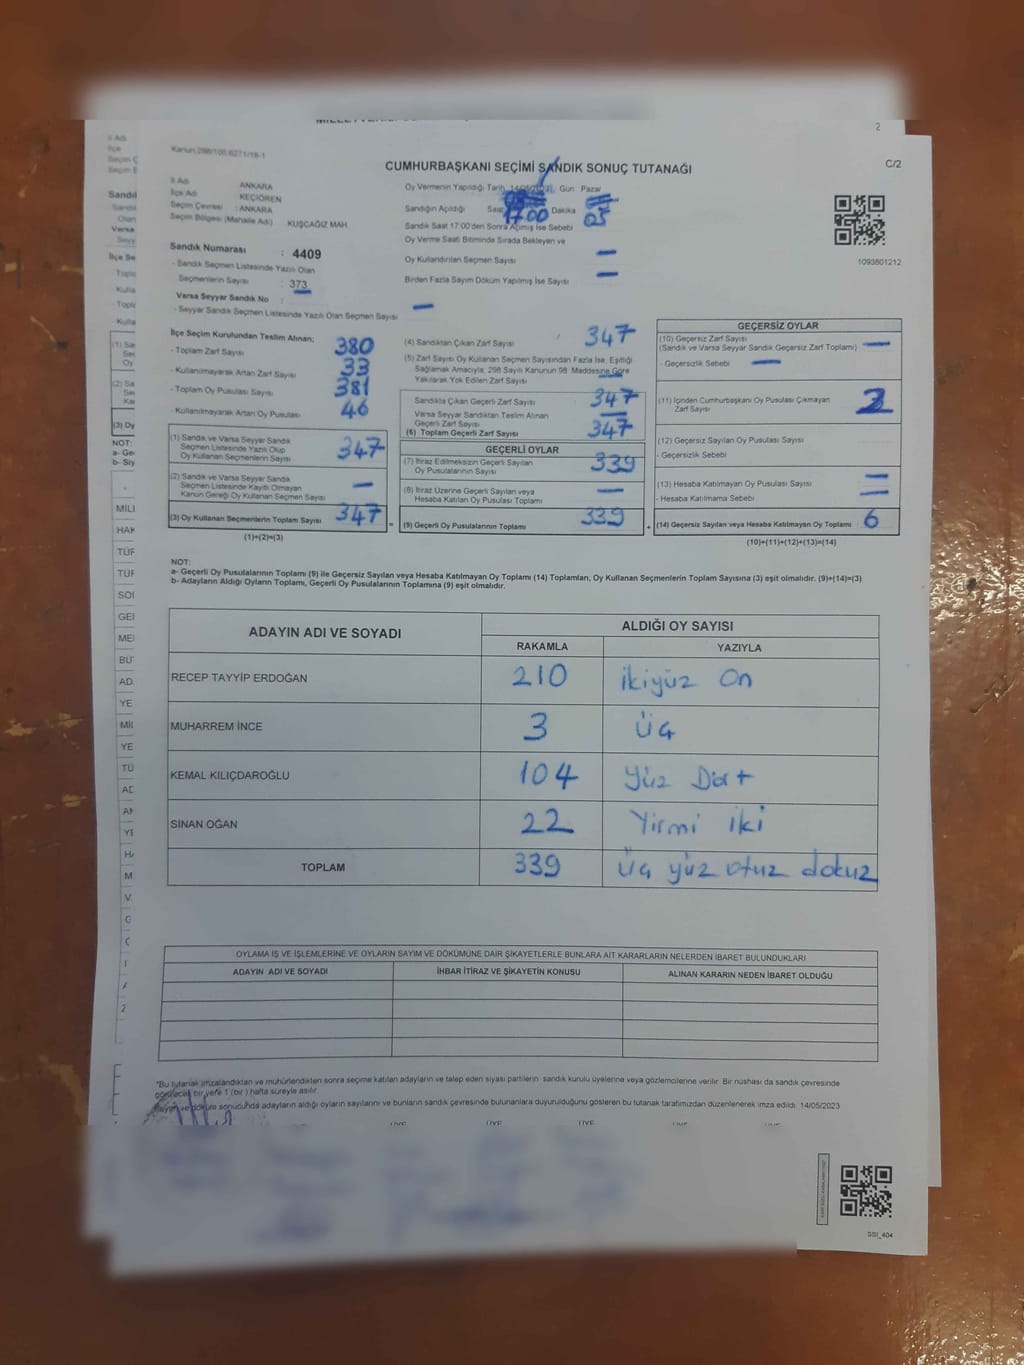 2
Kanun:298/105,6271/18-1
CUMHURBAŞKANI SEÇİMİ SANDIK SONUÇ TUTANAĞI
C/2
İl Adı : ANKARA
İlçe Adı : KEÇİÖREN
Seçim Çevresi : ANKARA
Seçim Bölgesi (Mahalle Adı) : KUŞCAĞIZ MAH
Sandık Numarası : 4409
- Sandık Seçmen Listesinde Yazılı Olan
Seçmenlerin Sayısı : 373
Varsa Seyyar Sandık No :
- Seyyar Sandık Seçmen Listesinde Yazılı Olan Seçmen Sayısı
Oy Vermenin Yapıldığı Tarih Gün Pazar
Sandığın Açıldığı Saat 17.00 Dakika 05
Sandık Saat 17:00'den Sonra Açılmış İse Sebebi
Oy Verme Saati Bitiminde Sırada Bekleyen ve
Oy Kullandırılan Seçmen Sayısı
Birden Fazla Sayım Döküm Yapılmış İse Sayısı
1093601212
İlçe Seçim Kurulundan Teslim Alınan;
- Toplam Zarf Sayısı 380
- Kullanılmayarak Artan Zarf Sayısı 33
- Toplam Oy Pusulası Sayısı 381
- Kullanılmayarak Artan Oy Pusulası 46
(1) Sandık ve Varsa Seyyar Sandık
Seçmen Listesinde Yazılı Olup
Oy Kullanan Seçmenlerin Sayısı 347
(2) Sandık ve Varsa Seyyar Sandık
Seçmen Listesinde Kayıtlı Olmayan
Kanun Gereği Oy Kullanan Seçmen Sayısı
(3) Oy Kullanan Seçmenlerin Toplam Sayısı 347
(1)+(2)=(3)
(4) Sandıktan Çıkan Zarf Sayısı 347
(5) Zarf Sayısı Oy Kullanan Seçmen Sayısından Fazla İse, Eşitliği
Sağlamak Amacıyla, 298 Sayılı Kanunun 98. Maddesine Göre
Yakılarak Yok Edilen Zarf Sayısı
Sandıkta Çıkan Geçerli Zarf Sayısı 347
Varsa Seyyar Sandıktan Teslim Alınan
Geçerli Zarf Sayısı
(6) Toplam Geçerli Zarf Sayısı 347
GEÇERLİ OYLAR
(7) İtiraz Edilmeksizin Geçerli Sayılan
Oy Pusulalarının Sayısı 339
(8) İtiraz Üzerine Geçerli Sayılan veya
Hesaba Katılan Oy Pusulası Toplamı
(9) Geçerli Oy Pusulalarının Toplamı 339
GEÇERSİZ OYLAR
(10) Geçersiz Zarf Sayısı
(Sandık ve Varsa Seyyar Sandık Geçersiz Zarf Toplamı)
- Geçersizlik Sebebi
(11) İçinden Cumhurbaşkanı Oy Pusulası Çıkmayan
Zarf Sayısı
(12) Geçersiz Sayılan Oy Pusulası Sayısı
- Geçersizlik Sebebi
(13) Hesaba Katılmayan Oy Pusulası Sayısı
- Hesaba Katılmama Sebebi
(14) Geçersiz Sayılan veya Hesaba Katılmayan Oy Toplamı 6
(10)+(11)+(12)+(13)=(14)
NOT:
a- Geçerli Oy Pusulalarının Toplamı (9) ile Geçersiz Sayılan veya Hesaba Katılmayan Oy Toplamı (14) Toplamları, Oy Kullanan Seçmenlerin Toplam Sayısına (3) eşit olmalıdır. (9)+(14)=(3)
b- Adayların Aldığı Oyların Toplamı, Geçerli Oy Pusulalarının Toplamına (9) eşit olmalıdır.
ADAYIN ADI VE SOYADI
ALDIĞI OY SAYISI
RAKAMLA YAZIYLA
RECEP TAYYİP ERDOĞAN 210 ikiyüz On
MUHARREM İNCE 3 Üç
KEMAL KILIÇDAROĞLU 104 Yüz Dört
SİNAN OĞAN 22 Yirmi iki
TOPLAM 339 Üç yüz otuz dokuz
OYLAMA İŞ VE İŞLEMLERİNE VE OYLARIN SAYIM VE DÖKÜMÜNE DAİR ŞİKAYETLERLE BUNLARA AİT KARARLARIN NELERDEN İBARET BULUNDUKLARI
ADAYIN ADI VE SOYADI İHBAR İTİRAZ VE ŞİKAYETİN KONUSU ALINAN KARARIN NEDEN İBARET OLDUĞU
*Bu tutanak imzalandıktan ve mühürlendikten sonra seçime katılan adayların ve talep eden siyasi partilerin sandık kurulu üyelerine veya gözlemcilerine verilir. Bir nüshası da sandık çevresinde
görülecek bir yere 1 (bir) hafta süreyle asılır.
Sayım ve döküm sonucunda adayların aldığı oyların sayılarını ve bunların sandık çevresinde bulunanlara duyurulduğunu gösteren bu tutanak tarafımızdan düzenlenerek imza edildi. 14/05/2023
SSI_404